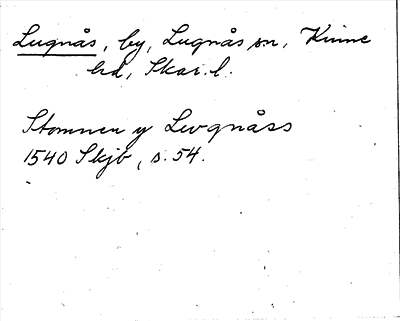 Lugnås, by, Lugnås sn, Kinne
hd, Skar. l.
Stommen y Lwgnåss
1540 Skjb, s. 54.